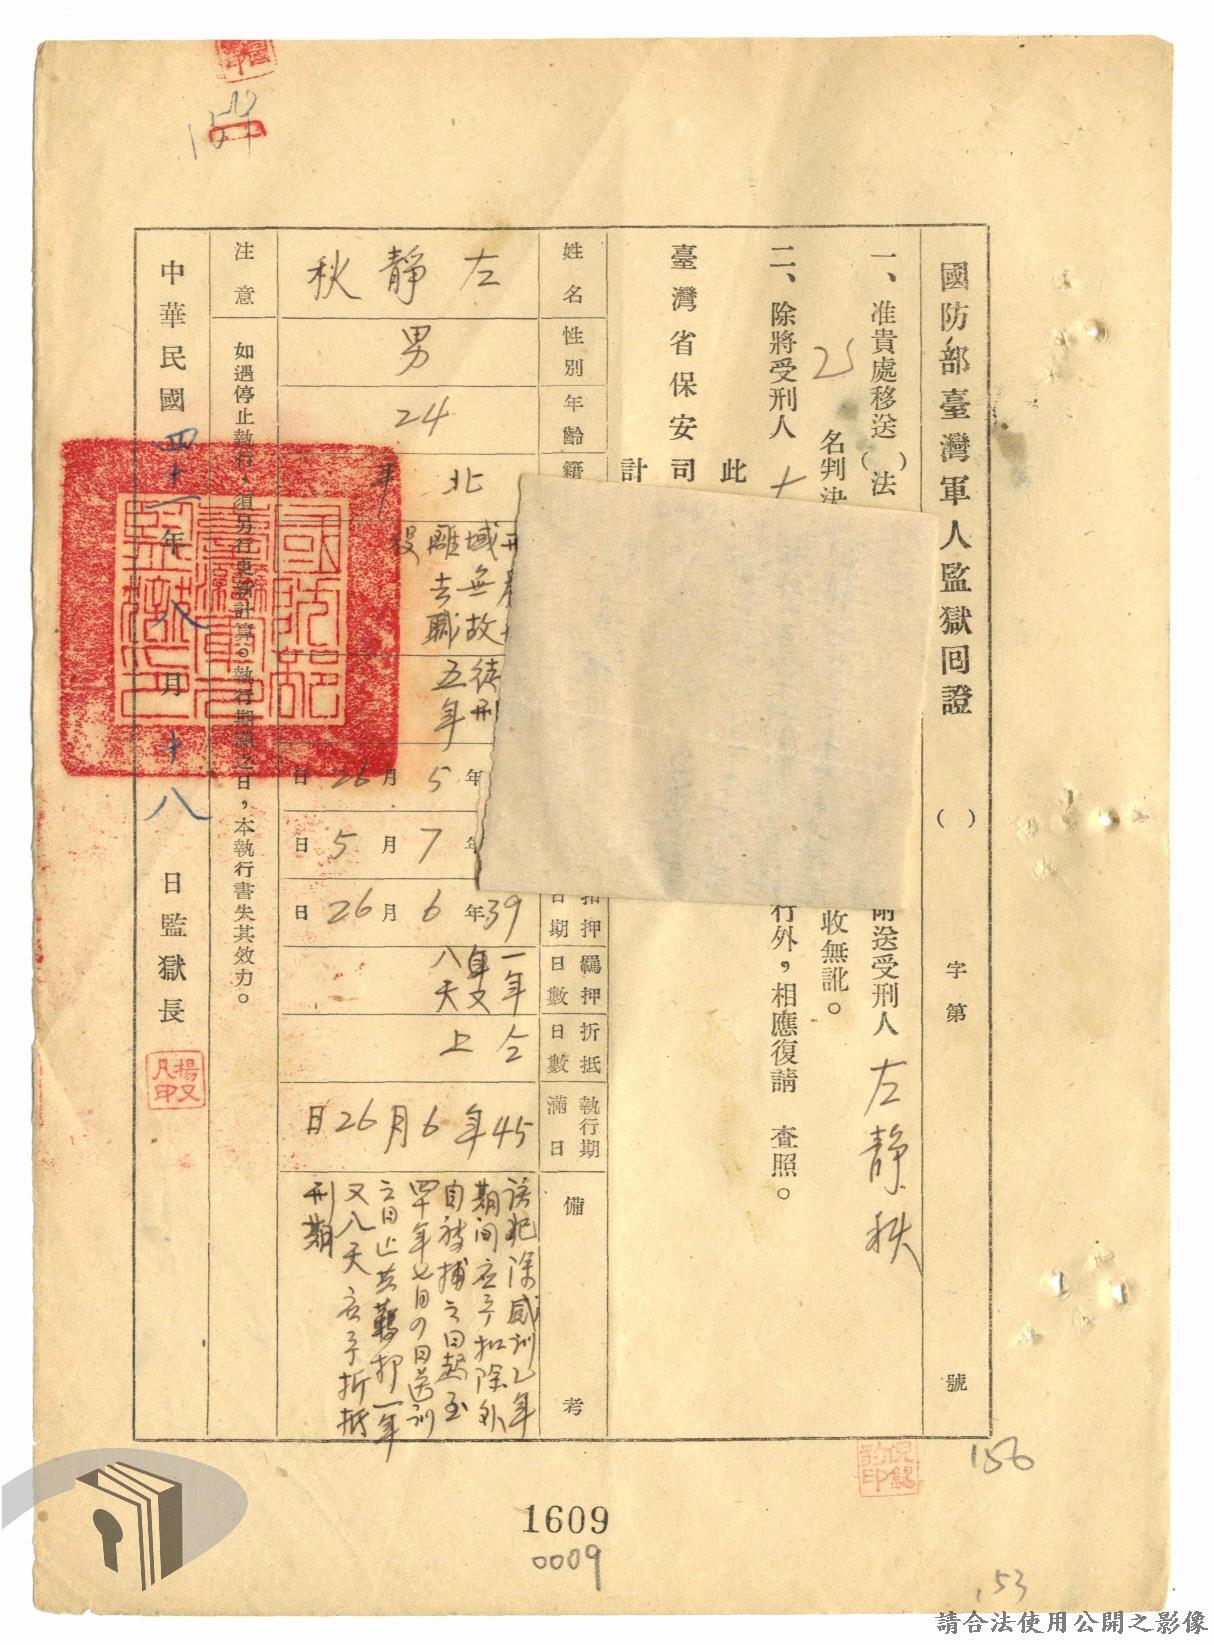 國防部臺灣軍人監獄回證
( )字第 號
一、准貴處移送( )法
附送受刑人左靜秋
25名判決
收無訛。
二、除將受刑人
行外，相應復請 查照。
此
臺灣省保安司
計
姓名
性別
年齡
籍
扣押日期
羈押日數
折抵日數
執行期滿日
備考
左靜秋
男
24
北
域無故離去職役
徒刑五年
年5月26日
年7月5日
39年6月26日
一年又八天
仝上
45年6月26日
該犯除感訓乙年
期间应予扣除外
自被捕之日起至
四十年七月4日送訓
之日止共羈押一年
又八天应予折抵
刑期
注意
如遇停止執行，須另行更新計算。執行期滿之日，本執行書失其效力。
中華民國四十一年八月十八日監獄長
國防部臺灣軍人監獄之印
1609
0009
156
153
請合法使用公開之影像